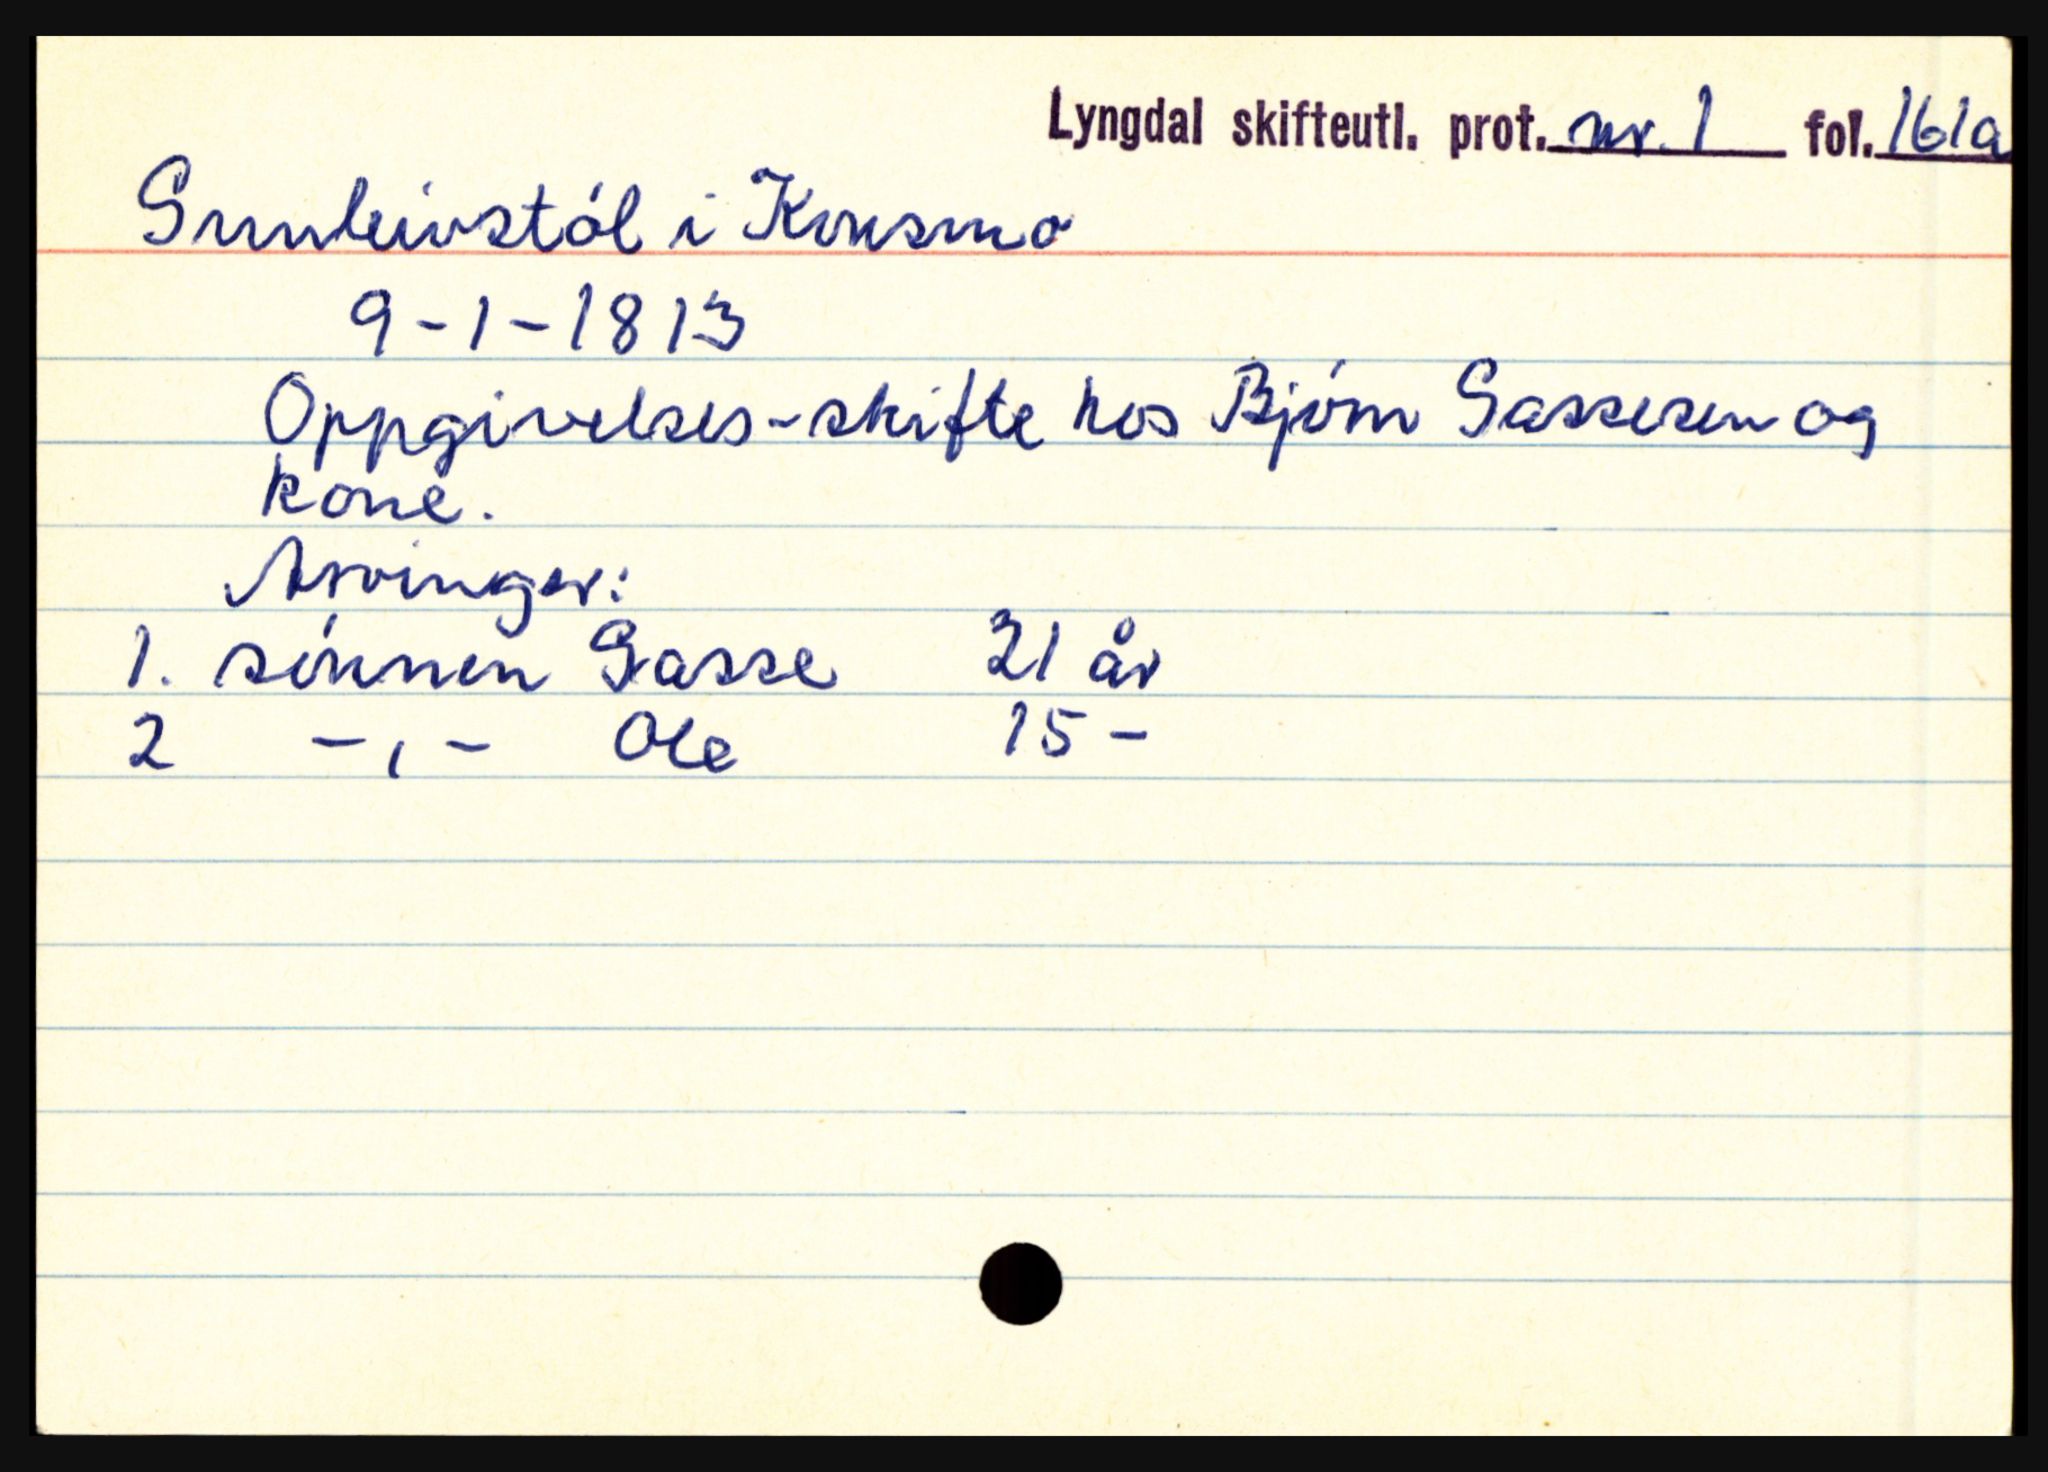 Lyngdal skifteutl. prot. nr. 1 fol. 161a
Gunleivstól i Konsmo
9-1-1813
Oppgivelses-skifte hos Bjórn Gassesen og
kone.
Arvinger:
1. sónnen Gasse 21 år
2 -,- Ole 15 -